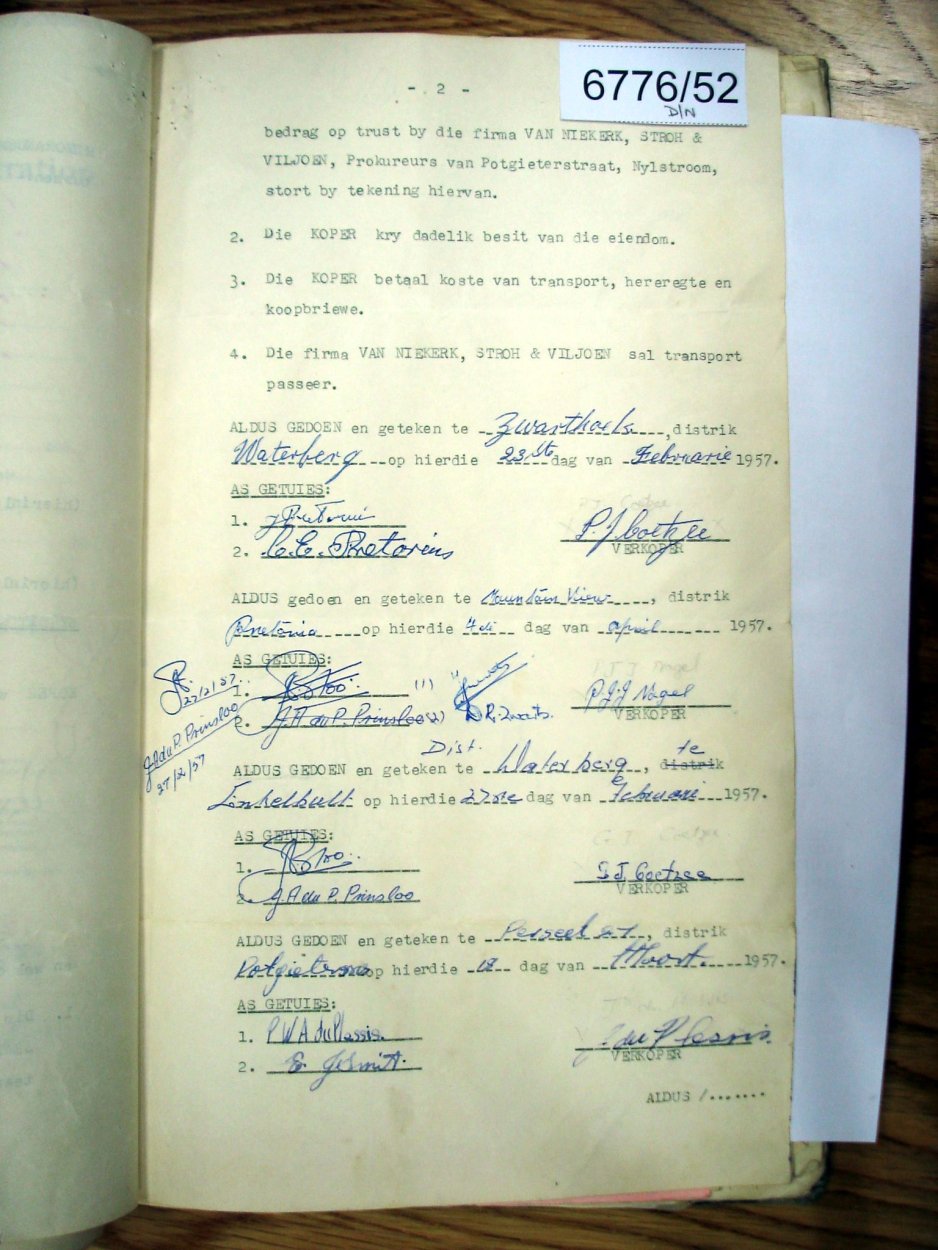 6776/52
D/N
- 2 -
bedrag op trust by die firma VAN NIEKERK, STROH &
VILJOEN, Prokureurs van Potgieterstraat, Nylstroom,
stort by tekening hiervan.
2. Die KOPER kry dadelik besit van die eiendom.
3. Die KOPER betaal koste van transport, hereregte en
koopbriewe.
4. Die firma VAN NIEKERK, STROH & VILJOEN sal transport
passeer.
ALDUS GEDOEN en geteken te Zwarthoek, distrik
Waterberg op hierdie 23ste dag van Februarie 1957.
AS GETUIES:
1.
2. C.E. Pretorius
P.J. Coetzee
VERKOPER
ALDUS gedoen en geteken te Mountain View, distrik
Pretoria op hierdie 4de dag van April 1957.
AS GETUIES:
27/2/57
1. (1)
P.J.J. Nagel
2. J.A du P. Prinsloo (2)
VERKOPER
J.A du P. Prinsloo
27/2/57
Dist. te
ALDUS GEDOEN en geteken te Waterberg, distrik
op hierdie 27ste dag van Februarie 1957.
AS GETUIES:
1.
2. J.A du P. Prinsloo
G.J. Coetzee
VERKOPER
ALDUS GEDOEN en geteken te Perseel 27, distrik
Potgietersrus op hierdie 18 dag van Maart 1957.
AS GETUIES:
1. P W A du Plessis
2. E. J. Smit.
J du Plessis
VERKOPER
ALDUS /.......